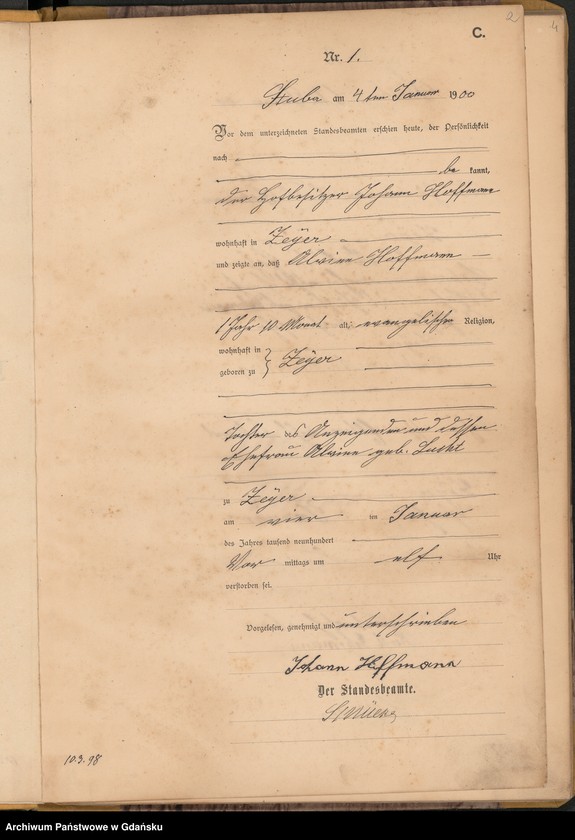 2
4
C.
Nr. 1.
Stuba am 4 ten Januar 1900
Vor dem unterzeichneten Standesbeamten erschien heute, der Persönlichkeit
nach
be kannt,
der Hofbesitzer Johann Hoffmann
wohnhaft in Zeÿer
und zeigte an, daß Alwine Hoffmann
1 Jahr 10 Monat alt, evangelischer Religion,
wohnhaft in
Zeÿer
geboren zu
Tochter des Anzeigenden und dessen
Ehefrau Alwine geb.
zu Zeÿer
am vier im Januar
des Jahres tausend neunhundert
Vor mittags um elf Uhr
verstorben sei.
Vorgelesen, genehmigt und unterschrieben
Johann Hoffmann
Der Standesbeamte.
10.3.98
Archiwum Państwowe w Gdańsku